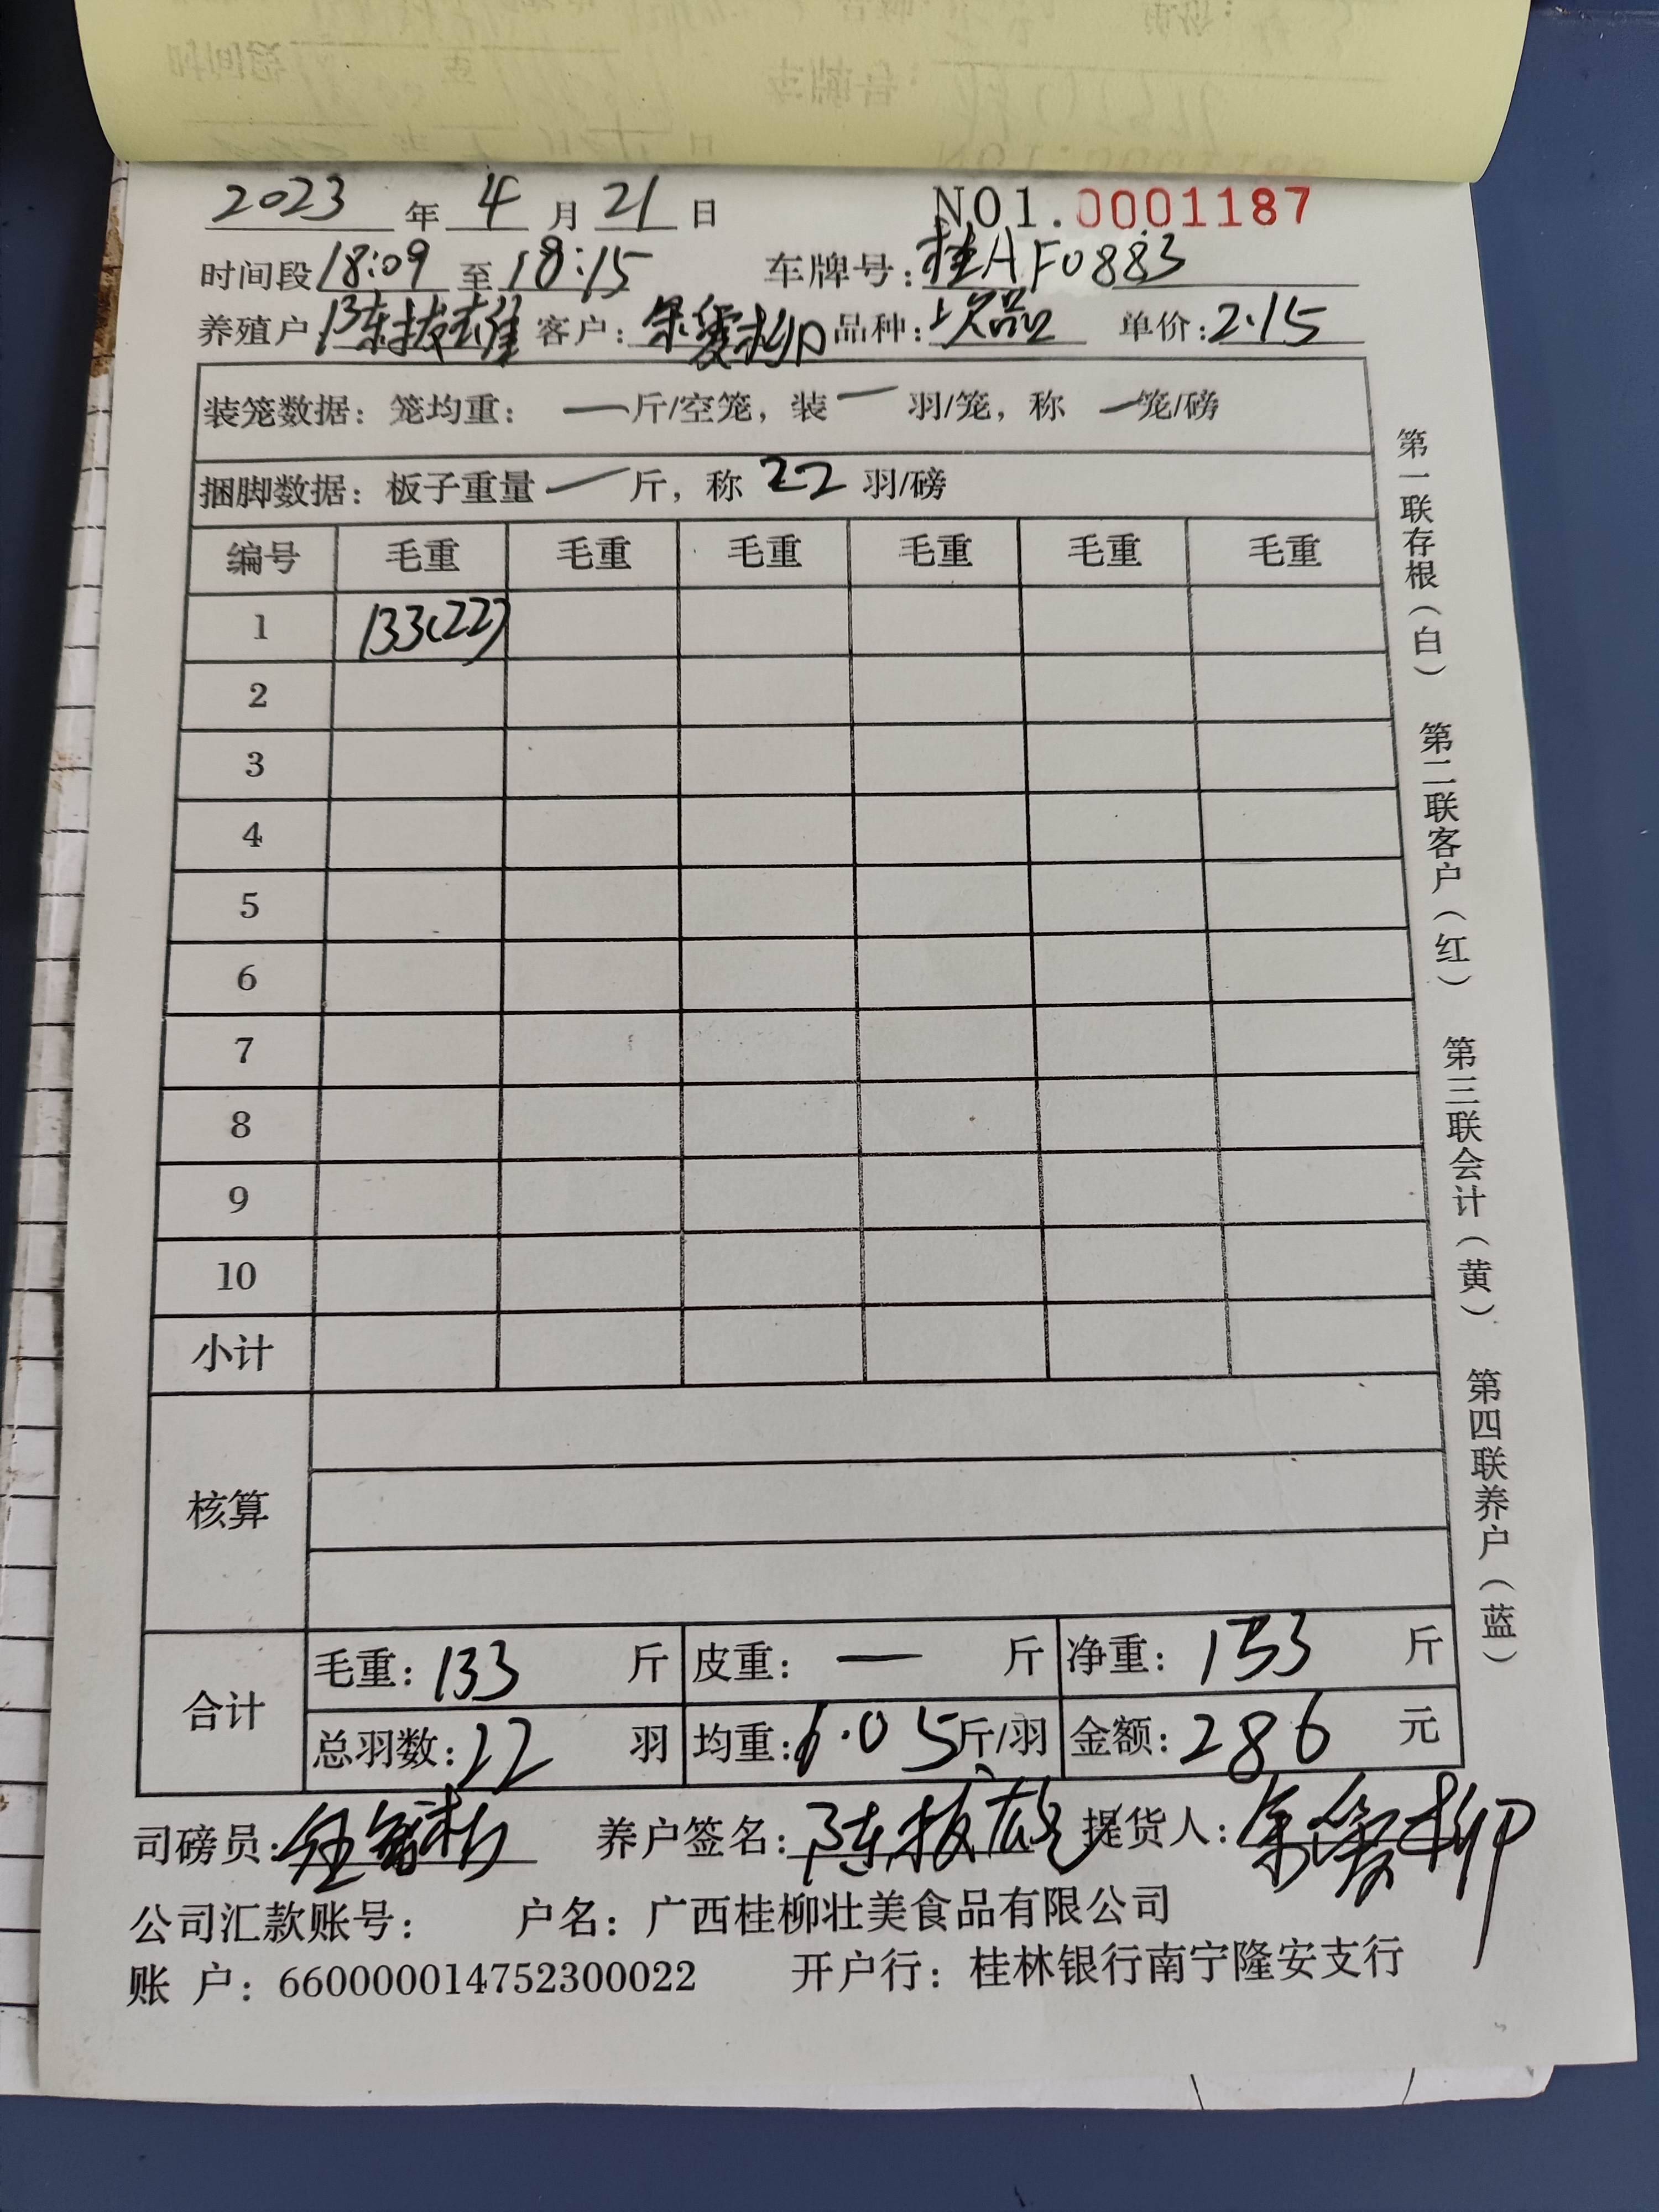 2023 年 4 月 21 日 NO1.0001187
时间段 18:09 至 18:15 车牌号: 桂AF0883
养殖户 陈拔雄 客户: 柳 品种: 次品 单价: 2.15
装笼数据: 笼均重: 一 斤/空笼, 装 一 羽/笼, 称 一 笼/磅
捆脚数据: 板子重量 一 斤, 称 22 羽/磅
编号 毛重 毛重 毛重 毛重 毛重 毛重
1 133(22)
2
3
4
5
6
7
8
9
10
小计
核算
合计 毛重: 133 斤 皮重: 一 斤 净重: 133 斤
总羽数: 22 羽 均重: 6.05 斤/羽 金额: 286 元
司磅员: 养户签名: 陈拔雄 提货人: 柳
公司汇款账号: 户名: 广西桂柳壮美食品有限公司
账 户: 660000014752300022 开户行: 桂林银行南宁隆安支行
第一联存根(白) 第二联客户(红) 第三联会计(黄) 第四联养户(蓝)